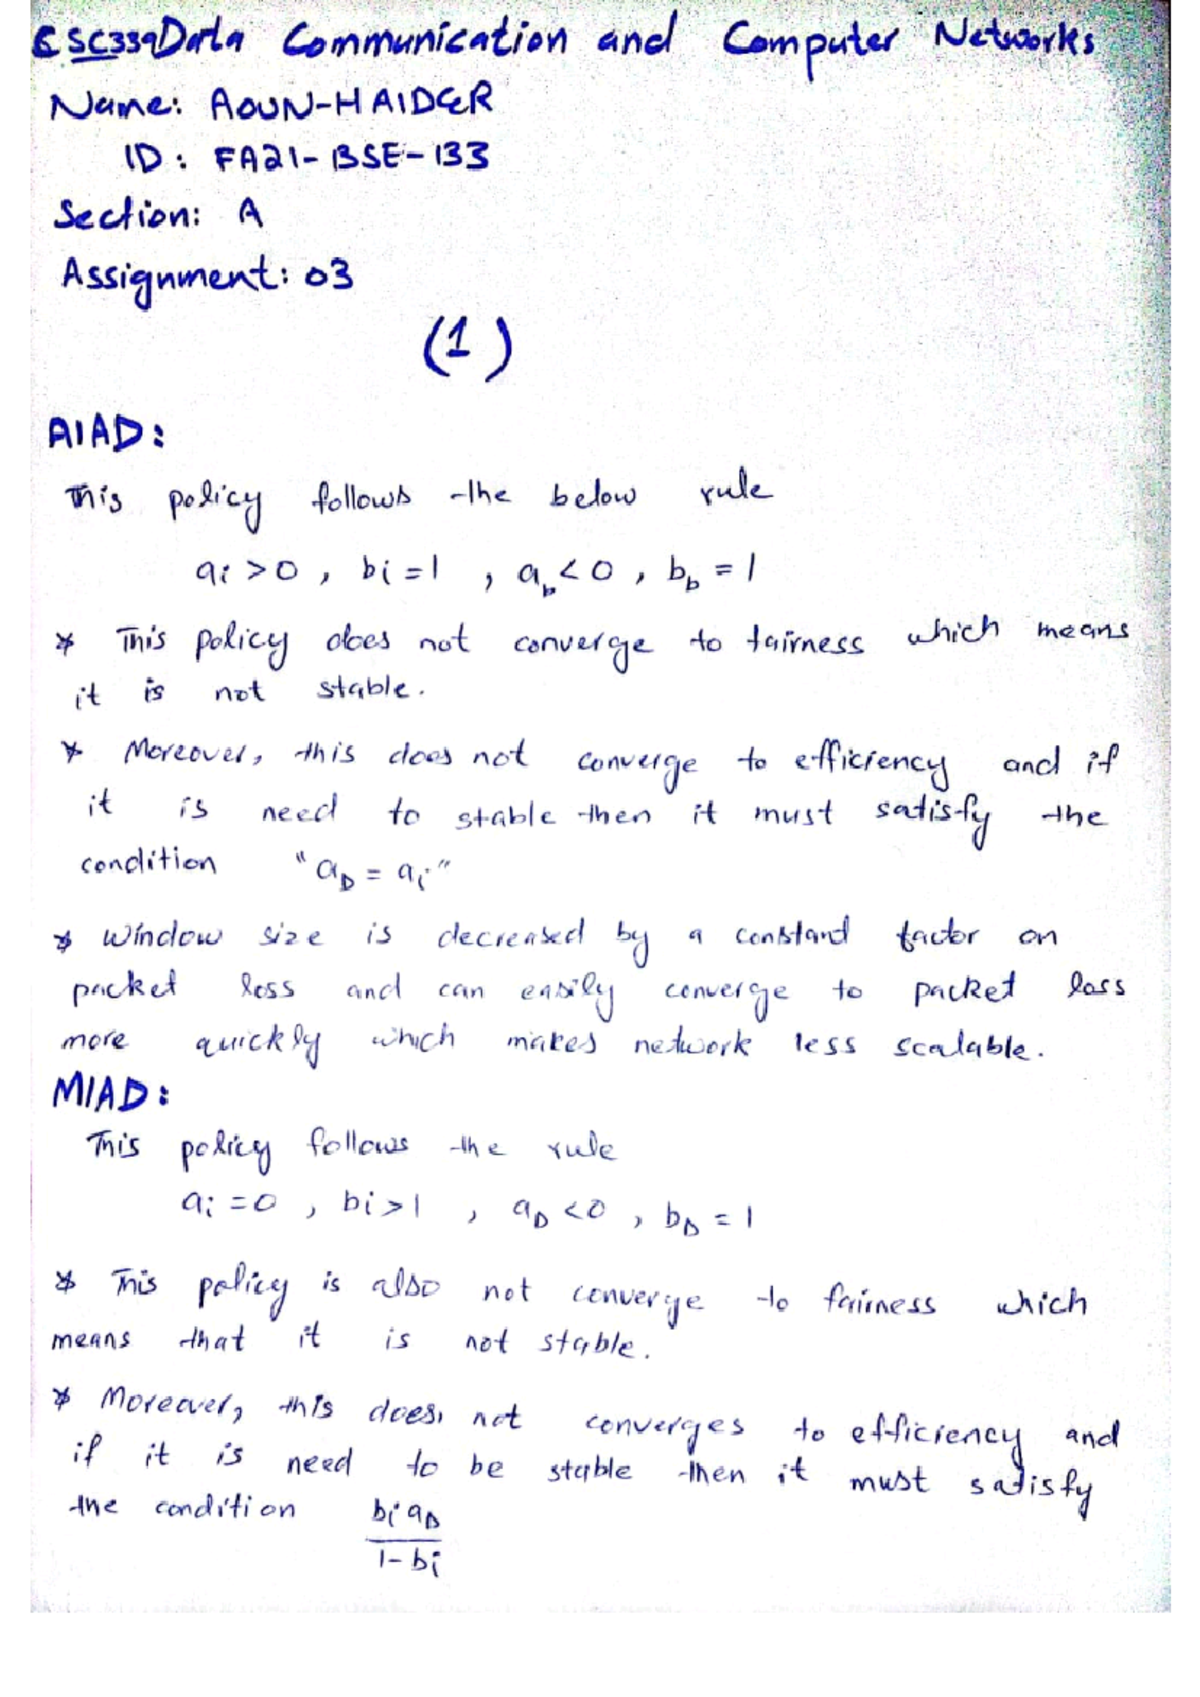 CSC339 Data Communication and Computer Networks
Name: AOUN-HAIDER
ID: FA21-BSE-133
Section: A
Assignment: 03
(1)
AIAD:
This policy follows the below rule
ai >0, bi =1, aD <0, bD = 1
* This policy does not converge to fairness which means
it is not stable.
* Moreover, this does not converge to efficiency and if
it is need to stable then it must satisfy the
condition "aD = ai"
* Window size is decreased by a constand factor on
packet loss and can easily converge to packet loss
more quickly which makes network less scalable.
MIAD:
This policy follows the rule
ai =0, bi >1, aD <0, bD = 1
* This policy is also not converge to fairness which
means that it is not stable.
* Moreover, this does not converges to efficiency and
if it is need to be stable then it must satisfy
the condition bi aD
1- bi